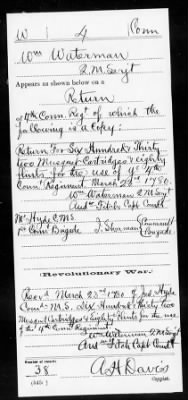 W | 4 | Conn
Wm Waterman
Q.M. Serjt
Appears as shown below on a
Return
of 4th Conn. Regt of which the
following is a Copy:
Return For Six Hundred & Thirty
two Musquet Cartridges & eighty
flints for the use of ye 4th
Connt Regiment March 23d 1780.
Wm Waterman Q M Serjt
Andw Fitch Capt Comdt
Mr Hyde C M S
1st Connt Brigade
J. Sherman
(Revolutionary War.)
Recvd March 23rd 1780 of Jed Hyde
Cond M.S. Six Hundred & thirty two
Musquet Cartridges & Eighty flints for the use
of the 4th Connt Regiment
Wm Waterman Q M Serjt
Andw Fitch Capt Comdt
Number of record:
38
A H Davis
Copyist.